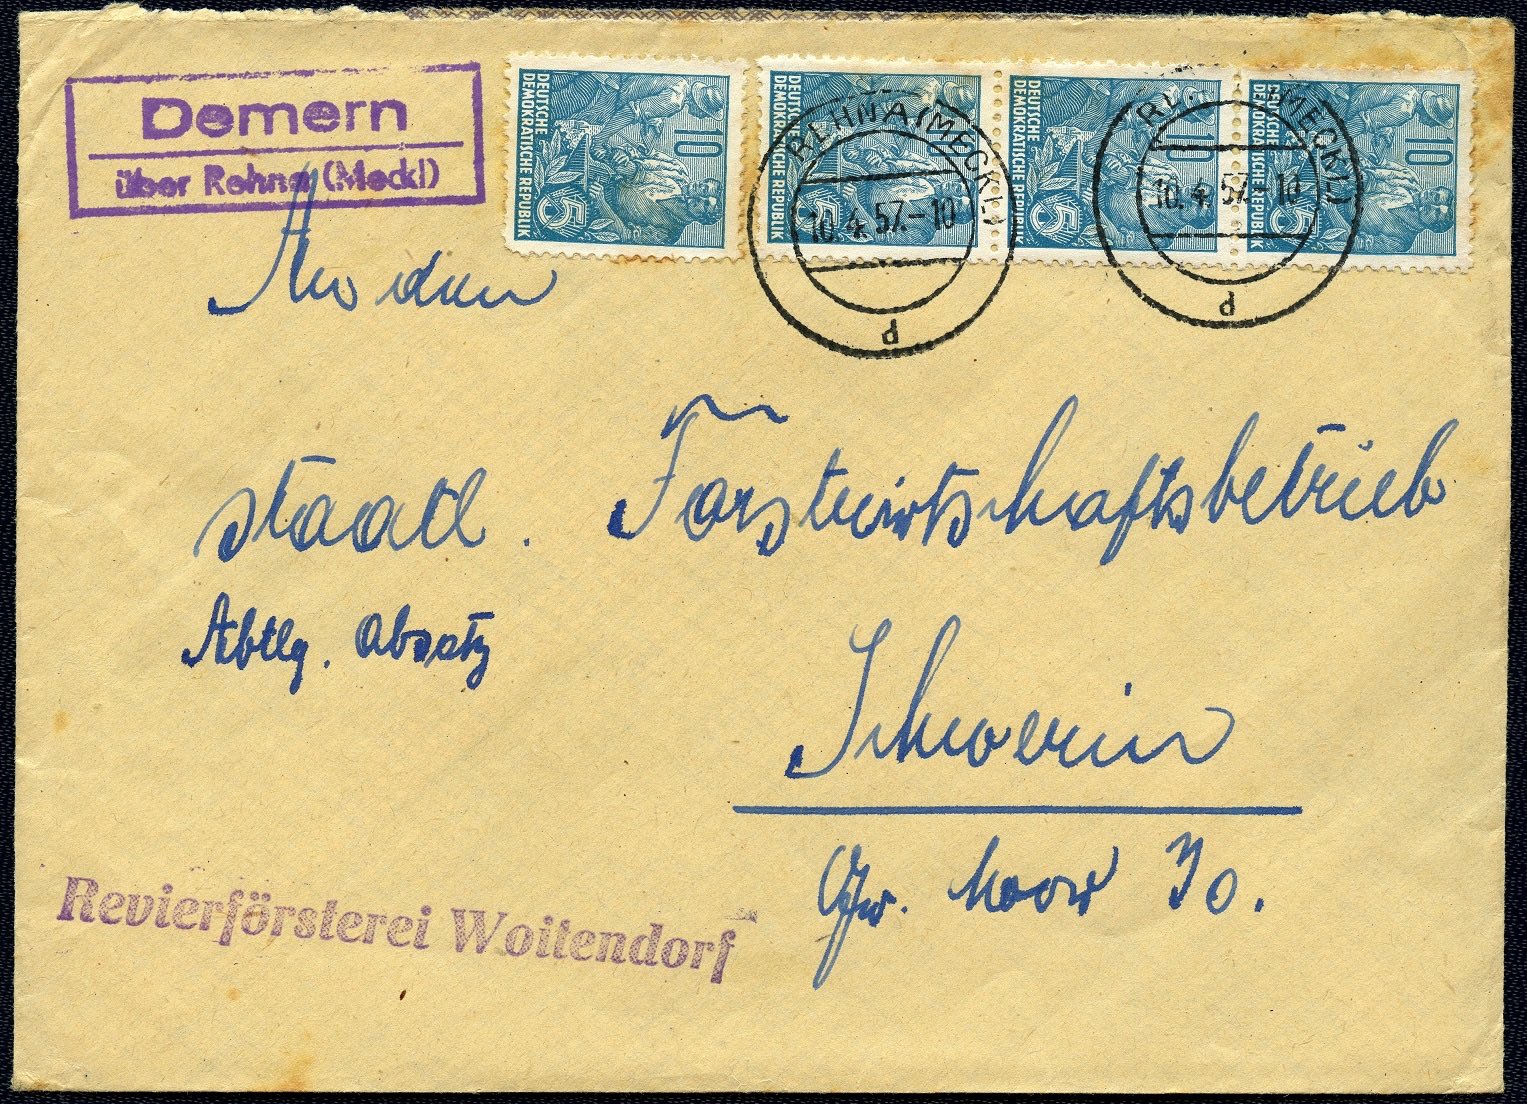 Demern
über Rehna (Meckl)
10
DEUTSCHE
DEMOKRATISCHE REPUBLIK
5
10
DEUTSCHE
DEMOKRATISCHE REPUBLIK
5
10
DEUTSCHE
DEMOKRATISCHE REPUBLIK
5
10
DEUTSCHE
DEMOKRATISCHE REPUBLIK
5
REHNA (MECKL)
10.4.57.-10
d
MECKL)
10.4.57.-10
d
An den
staatl. Forstwirtschaftsbetrieb
Abtlg. Absatz
Schwerin
Gr. Moor 30.
Revierförsterei Woitendorf